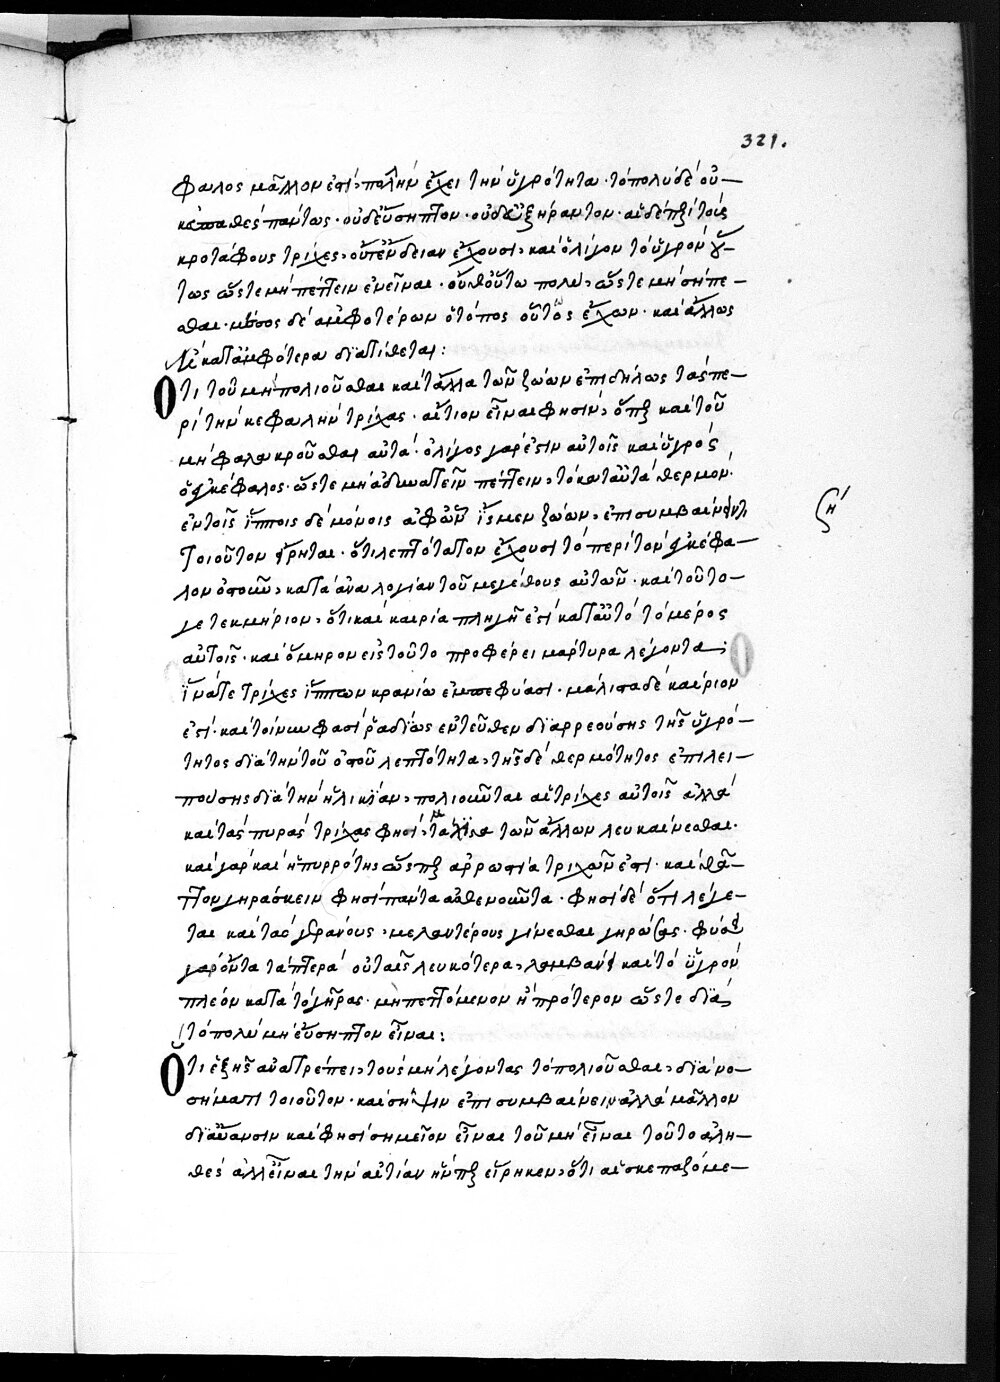 321.
φαλος μᾶλλον ἐστὶ, πολλὴν ἔχει τὴν ὑγρότητα· τὸ πολὺ δὲ οὐ-
κ εὐπαθὲς πάντως· οὐδ' εὔσηπτον· οὐδ' εὐξήραντον· αἱ δέπερ ἐπὶ τοὺς
κροτάφους τρίχες, οὔτ' ἔνδειαν ἔχουσι, καὶ ὀλίγον τὸ ὑγρὸν οὕ-
τως ὥστε μὴ πέττειν ἐνεῖναι· οὔθ' οὕτω πολὺ, ὥστε μὴ σήπε-
σθαι· μέσος δὲ ἀμφοτέρων ὁ τόπος οὗτος ἔχων· καὶ ἄλλως
ἢ κατ' ἀμφότερα διατίθεται:
Ὅτι τοῦ μὴ πολιοῦσθαι καὶ τἄλλα τῶν ζώων ἐπιδήλως τὰς πε-
ρὶ τὴν κεφαλὴν τρίχας· αἴτιον εἶναι φησὶν, ὅπερ καὶ τοῦ
μὴ φαλακροῦσθαι αὐτά· ὀλίγος γάρ ἐστιν αὐτοῖς καὶ ὑγρὸς
ὁ ἐγκέφαλος· ὥστε μὴ ἀδυνατεῖν πέττειν, τὸ κατ' αὐτὰ θερμόν·
ἐν τοῖς ἵπποις δὲ μόνοις ἀφ' ὧν ἴσμεν ζώων, ἐπισυμβαίνειν τι
τοιοῦτον εἴρηται· ὅτι λεπτότατον ἔχουσι τὸ περὶ τὸν ἐγκέφα-
λον ὀστοῦν, κατὰ ἀναλογίαν τοῦ μεγέθους αὐτῶν· καὶ τοῦ το-
γε τεκμήριον, ὅτι καὶ καιρία πληγή ἐστι κατ' αὐτὸ τὸ μέρος
αὐτοῖς· καὶ ὅμηρον εἰς τοῦτο προφέρει μάρτυρα λέγοντα,
ἵνα τε τρίχες ἵππων κρανίω ἐμπεφύασι· μάλιστα δὲ καίριον
ἐστί· καὶ τοίνυν φασὶ ῥαδίως ἐντεῦθεν διαρρεούσης τῆς ὑγρό-
τητος διὰ τὴν τοῦ ὀστοῦ λεπτότητα, τῆς δὲ θερμότητος ἐπιλει-
πούσης διὰ τὴν ἡλικίαν, πολιοῦνται αἱ τρίχες αὐτοῖς ἀλλὰ
καὶ τὰς πυρὰς τρίχας φησὶ, τάχιστα τῶν ἄλλων λευκαίνεσθαι·
καὶ γὰρ καὶ ἡ πυρρότης ὥσπερ ἀρρωστία τριχῶν ἐστι· καὶ θᾶτ-
τον γηράσκειν φησὶ πάντα ἀσθενοῦντα· φησὶ δὲ ὅτι λέγε-
ται καὶ τὰς γεράνους, μελαντέρους γίνεσθαι γηρώσας· φύσει
γὰρ ὄντα τὰ πτερὰ αὐταῖς λευκότερα, λαμβάνει καὶ τὸ ὑγρὸν
πλέον κατὰ τὸ γῆρας· μὴ πεττόμενον ἢ πρότερον ὥστε διὰ
τὸ πολὺ μὴ εὔσηπτον εἶναι:
Ὅτι ἑξῆς ἀνατρέπει, τοὺς μὴ λέγοντας τὸ πολιοῦσθαι, διὰ νο-
σήματι τοιοῦτον· καὶ σῆψιν ἐπισυμβαίνειν ἀλλὰ μᾶλλον
δι' αὔανσιν καὶ φησὶ σημεῖον εἶναι τοῦ μὴ εἶναι τοῦτο ἀλη-
θὲς ἀλλ' εἶναι τὴν αἰτίαν ἥνπερ εἴρηκεν, ὅτι αἱ σκεπαζόμε-
ζή